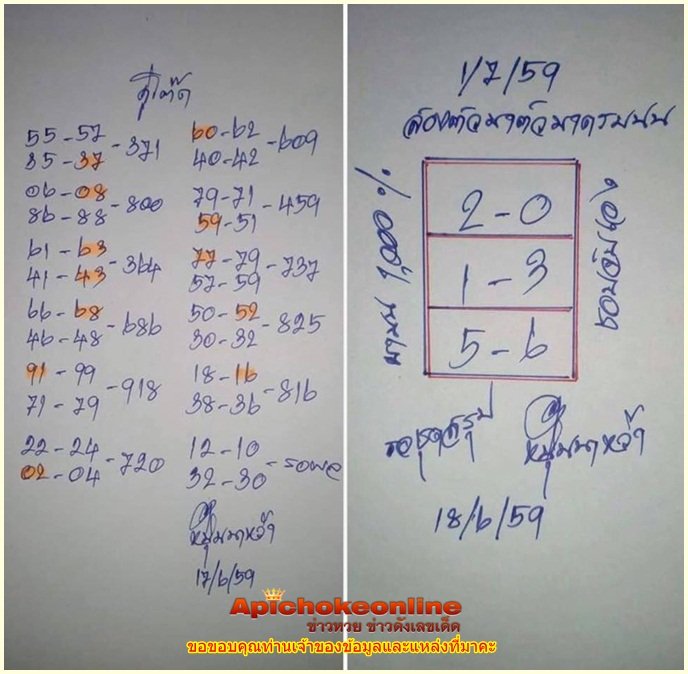 คู่โต๊ด
55-57
85-37 -371
06-08
86-88 -800
61-63
41-43 -364
66-68
46-48 -686
91-99
71-79 -918
22-24
02-04 -720
60-62
40-42 -609
79-71
59-51 -459
77-79
57-59 -737
50-52
30-32 -825
18-16
38-36 -816
12-10
32-30 -รอผล
หนุ่มนาหว้า
17/6/59
1/7/59
มาบน 1,000%
2-0
1-3
5-6
หนุ่มนาหว้า
18/6/59
Apichokeonline
ข่าวหวย ข่าวดังเลขเด็ด
ขอขอบคุณท่านเจ้าของข้อมูลและแหล่งที่มาคะ